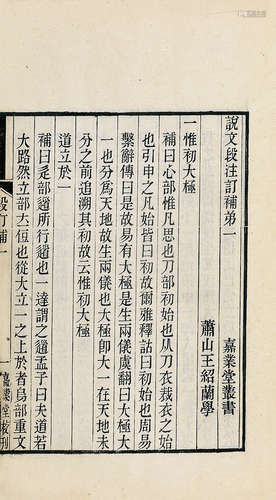 說文段注訂補弟一　嘉業堂叢書
蕭山王紹蘭學
一惟初大極
補曰心部惟凡思也刀部初始也从刀衣裁衣之始
也引申之凡始皆曰初故爾雅釋詁曰初始也周易
繫辭傳曰是故易有大極是生兩儀虞翻曰大極大
一也分爲天地故生兩儀也大極卽大一在天地未
分之前追溯其初故云惟初大極
道立於一
補曰辵部道所行道也一達謂之道孟子曰夫道若
大路然立部立侸也從大立一之上於者烏部重文
段訂補一
嘉業堂校刊